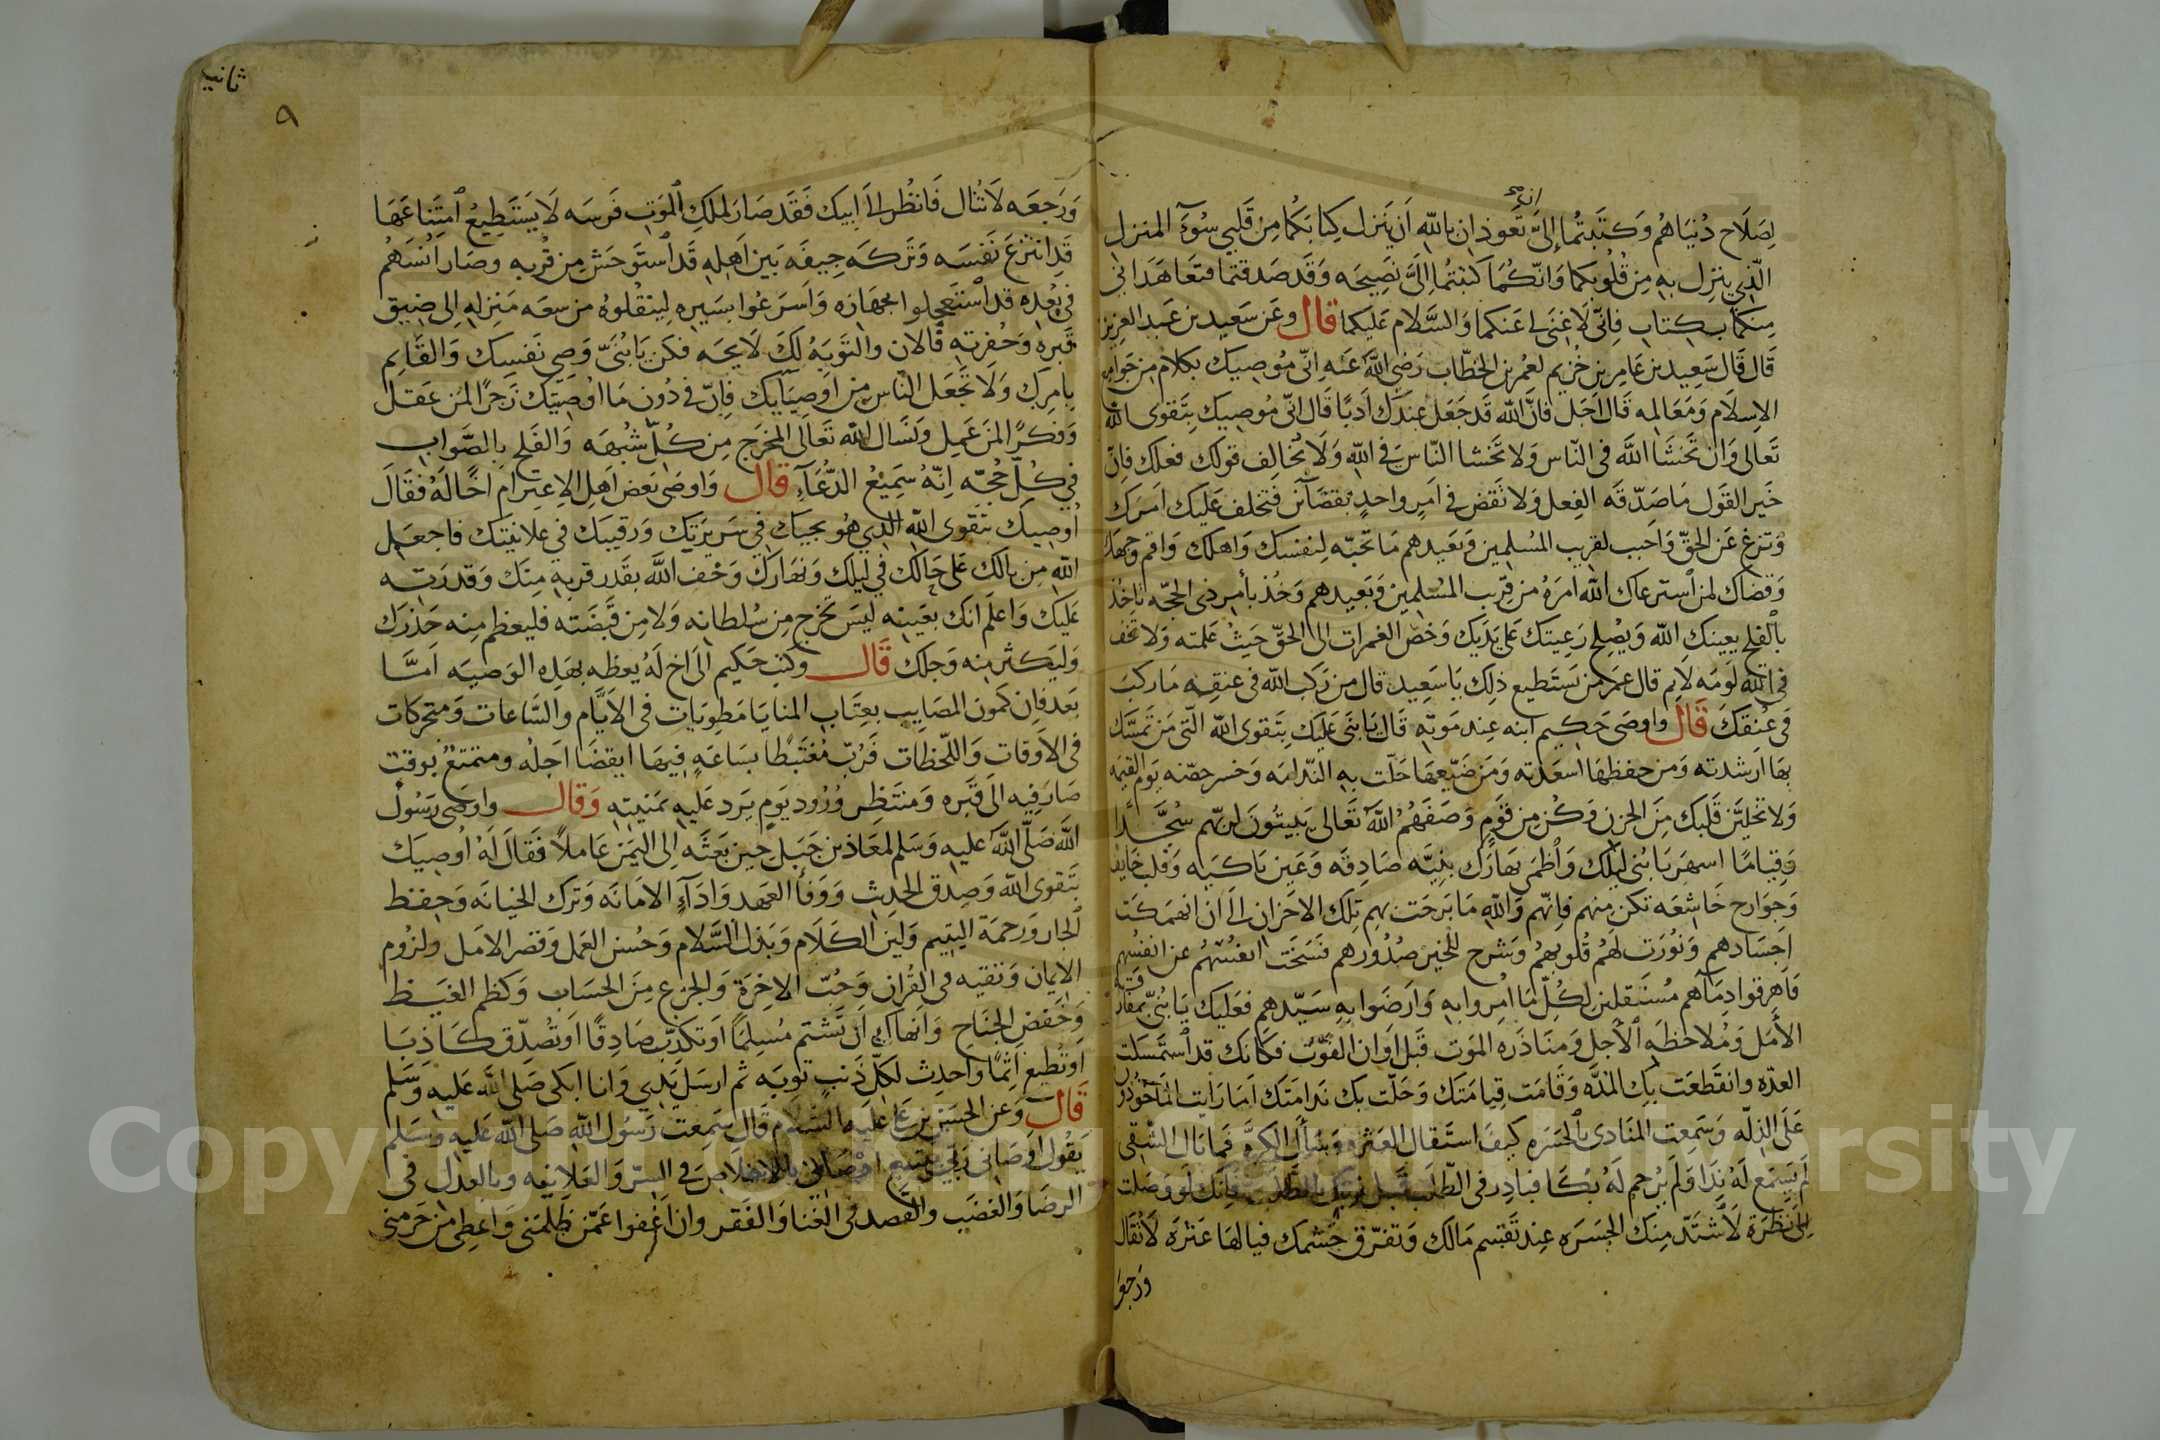 انكما
لِصَلَاح دُنيَاهُم وَكتَبتُما إلىَّ تَعوذان بالله اَن يَنزل كتابكما مِن قَلبي سُوءَ المنزل
الّذي ينزل به مِن قُلُوبكما وَانّكُمَا كتبتُما اِلىَّ نَصِيحَه وَقَد صَدقتما فتَعَاهَدَاني
مِنكمَا بكتاب فاِنّى لَاغِنَى لى عَنكما وَالسَّلام عَليكما قال وعَن سَعِيد بن عَبد العزيز
قَال قَال سَعِيد بن عَامِر بن خُزيم لعمُر بن الخطّاب رَضِى اللهُ عَنه انّى مُوصِيك بكلام مِن جَوَامِع
الاِسلَام وَمَعَالمِه قَال اَجَل فَانَّ الله قَد جَعَل عِندَك اَدبًا قَال انّى مُوصِيك بتَقوى الله
تَعَالى وَان تَخشَا اللهَ فى النّاس وَلا تَخشا النّاسَ فى الله وَلَا تخُالِف قولك فعلك فاِنّ
خَير القَول مَا صَدّقَه الفِعل وَلا تَقض فى اَمرٍ واحدٍ بقضَآئين فَتخلف عَليك اَمرَك
وَتزغ عَن الحقّ وَاَحبب لقَريب المُسلمِين وَبَعِيدهم مَا تحبّه لِنفسِك وَاهلك وَاقم وجهَك
وَقضَاك لمن اَسترعاك الله امرَهُ من قَرِيب المُسلِمين وَبَعِيدهم وَخُذ بأمر ذى الحجّه تاخُذ
بالفَلح يعِينكِ الله وَيصُلح رَعِيتك عَلى يَدَيك وَخضّ الغمرات الى الحقّ حَيثُ عَلمته وَلا تخف
فى الله لَومَه لَايم قال عمَر مَن يَستَطيع ذلِك يَا سَعِيد قال من رَكب الله فى عنقِه مَا ركبَ
فى عُنقكَ قَال واوصَى حَكِيم ابنه عِند مَوته قَال يَا بنَى عَليك بتَقوى الله الّتى مَن تَمسَّك
بهَا اَرشدته وَمَن حفظهَا اسعَدته وَمَن ضَيّعهَا حَلّت بهِ النّدامَه وَخسر حصّنه يَوم القيمَه
وَلا تخليَّن قَلبك مِنَ الحزن وَكُن مِن قَومٍ وَصَفَهُم اللهُ تَعَالى يَبيتُونَ لربّهم سُجَّدًا
وَقِيَامًا اسهَر يَا بُنى لَيلك وَاظمَ نهَارَك بنِيَّه صَادِقَه وَعَين بَاكيَه وَقلب خَايف
وَجوَارح خَاشِعَه تكن منهم فاِنّهم وَاللهِ مَا بَرحَت بهِم تِلك الاحزَان اِلى اَن انهمكَت
اَجسَادهم وَنُورَت لهَم قُلوبهُم وَشرح للخير صُدُورهم فسَخَت انفسُهُم عن انفسُهِم
فَاهرقوا دِمَآهم مُستَقلين لِكُلّ مَا امرِوا بهِ وَارضَوا بهِ سَيّدهم فعَليك يَا بُنىّ بمفَارقَة
الأمَل وَمُلاحظَه الأجل وَمنَاذَره الموَت قَبل اَوَان الفَوت فكَانك قد اَستمسَلت
العدّه وانقَطعَت بك المدّه وَقَامَت قِيامَتك وَحَلّت بك نَدامَتَك اَمَا رَايت المأخُوذ
عَلى الذِلّه وَسَمِعت المنَادى بالحَسَرَه كيفَ استَقال العَثره وَسَأل الكرّه فمَا بَال الشقى
لَم يَسمَع لَهُ نِدَا وَلَم يُرحم لَهُ بُكَا فبَادِر فى الطّلَب قَبل فاِنّك لَو وَصَلت
اِلى نظَرَة لَاشتَدّ مِنك الحَسَرَه عِند تَقسِم مَالك وَتفرّق حَشمك فيَا لهَا عَثرَه لَا تُقَال
ورجعَه
ثانيه
٩
وَرَجعَه لَا تُنال فَانظُر اِلى اَبيك فَقَد صَارَ لمِلكِ الموَت فَرسَه لَا يَستَطِيعُ اَمتِناعَهَا
قَدِ انتَزعَ نَفسَه وَتَركَه جِيفَه بَين اَهلِه قَد اَستَوحَش مِن قُربه وَصَار اُنسَهُم
فى بعُدِه قد اَستَعجلوا بجهَازه وَاَسرَعُوا بسَيره لينقُلوهُ من سعَه مَنزله اِلى ضِيق
قَبره وَحُفرَته فَالان والتَوبَهُ لكَ لَايحَه فكن يَا بُنىّ وَصى نَفسِك وَالقَايم
بامرك وَلَا تَجعَل النّاس مِن اَوصِيَايك فاِنّ فى دُون مَا اوُصَيّتك زَجرًا لمَن عَقل
وَفكرًا لمَن عَمِل وَنسَال الله تعَالى المخرَج مِن كُلّ شُبهَه وَالفَلح بِالصّوَاب
فى كُلّ حُجّه اِنّهُ سَمِيعُ الدّعَآءِ قَال وَاوصَى بَعض اَهلِ الِاعتِزام اَخًا لَهُ فَقَالَ
اُوصِيكَ بتَقوى الله الذي هُو نجيبَك فى سَريرَتِك وَرَقيبَك فى عَلانيَتك فاجعَل
الله مِن بالك عَلى حَالك فى ليلِك وَنَهارَك وَخف اللهَ بقَدر قربه مِنك وَقدرَته
عَليك وَاعلَم انك بعَينه ليسَ تخرج مِن سُلطانه وَلا مِن قبضَته فليعظم مِنه حَذرَك
وَليَكثر منه وَجلك قَال وَكتب حَكيم اِلى اَخ لَهُ يعظه بهَذِه الوَصِيَه اَمَّا
بَعد فاِن كمون المصَايب بعِتَاب المنايَا مَطوِيَات فى الاَيّام والسَّاعات وَمتحركات
فى الاَوقات وَاللّحظات فَرُبّ مُغتَبطًا بسَاعَه فِيهَا ايقضَا اَجلُه ومتمَتع بوقت
صَار فِيه اِلى قَبره وَمُنتَظِر وُرُود يَومٍ يَرد عَليه بمَنيته وَقال واوصَى رَسُول
اللهَ صَلّى اللهَ عليه وَسَلم لمعَاذ بن جَبَل حِين بَعثَه اِلى اليَمَن عَاملاً فَقالَ لَهُ اُوصِيكَ
بتَقوى الله وَصِدق الحَدِيث وَوَفا العهَد وَادَآءِ الامَانَه وَترك الخيانَه وَحِفظ
الجَار وَرحمَة اليَتيم وَلين الكَلَام وَبَذل السَّلام وَحُسن العمَل وَقصر الامَل ولزُوم
الايمَان وَتفقيه فى القُرانِ وَحُبّ الاخِرَة وَالجزع مِنَ الحسَاب وَكظم الغيَظ
وَخَفض الجَناح وَاَنهاك اَن تَشتم مُسلِمًا اَو تكذّب صَادِقًا اَو تُصَدّق كَاذِبًا
اَو تُطِيع اثمًا وَاحدِث لكلّ ذَنبٍ تَوبَه ثم اَرسَل يَدي وَانا ابكى صَلى الله عَليه وَسَلم
قَال وَعن الحسَن بن عَلى عليهَما السّلام قَال سَمِعت رَسُول الله صَلى الله عَليه وَسَلم
يَقُول اَوصَانى رَبى بتِسَع اَوصَانى بالاخلَاص فى السِرّ وَالعَلانِيه وبالعَدل فى
الرضَا وَالغضَب والقَصد فى الغنَا وَالفَقر وان اَعفوا عَمّن ظَلمَنى وَاعطِى مَن حَرمنى